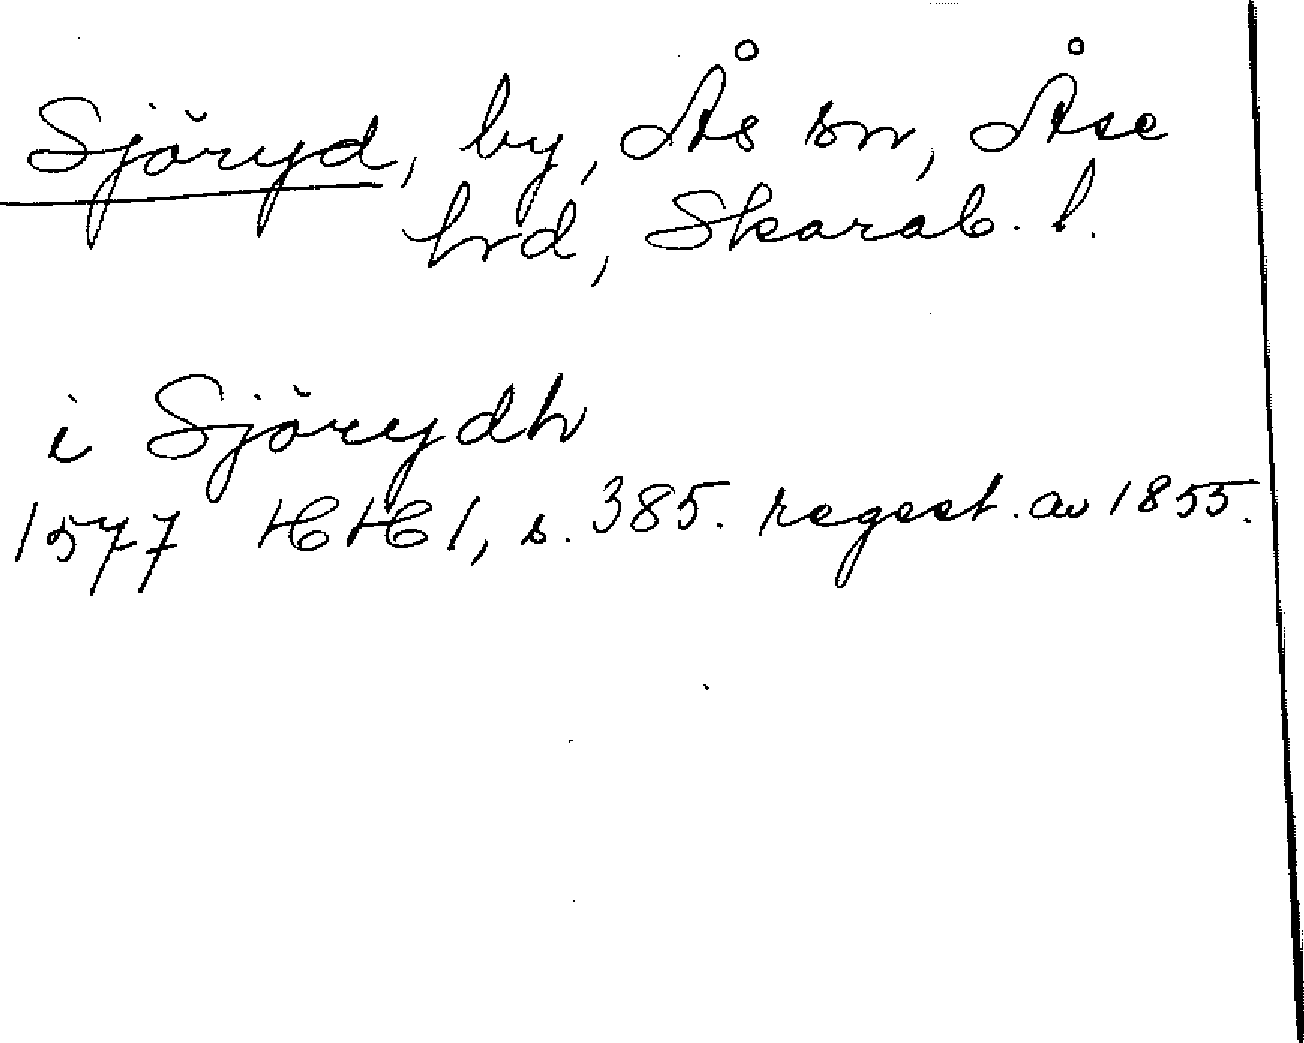 Sjöryd, by, Ås sn, Åse
hrd, Skarab. l.
i Sjörydh
1577 HH 1, s. 385. regest. av 1855.